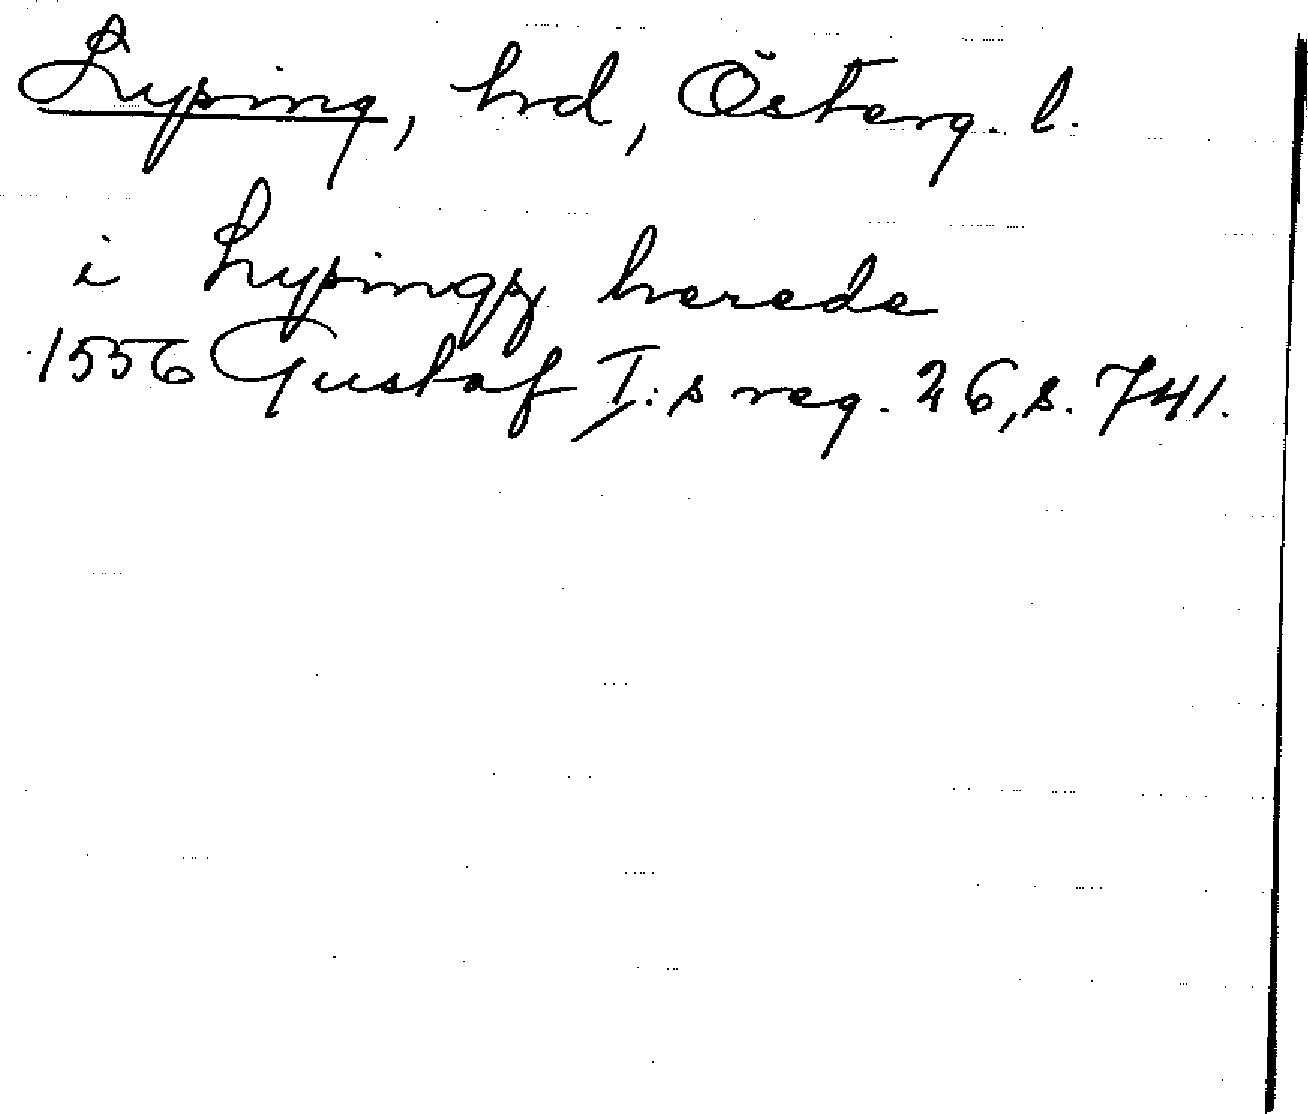 Lysing, hrd, Österg. l.
i Lysingz herede
1556 Gustaf I:s reg. 26, s. 741.